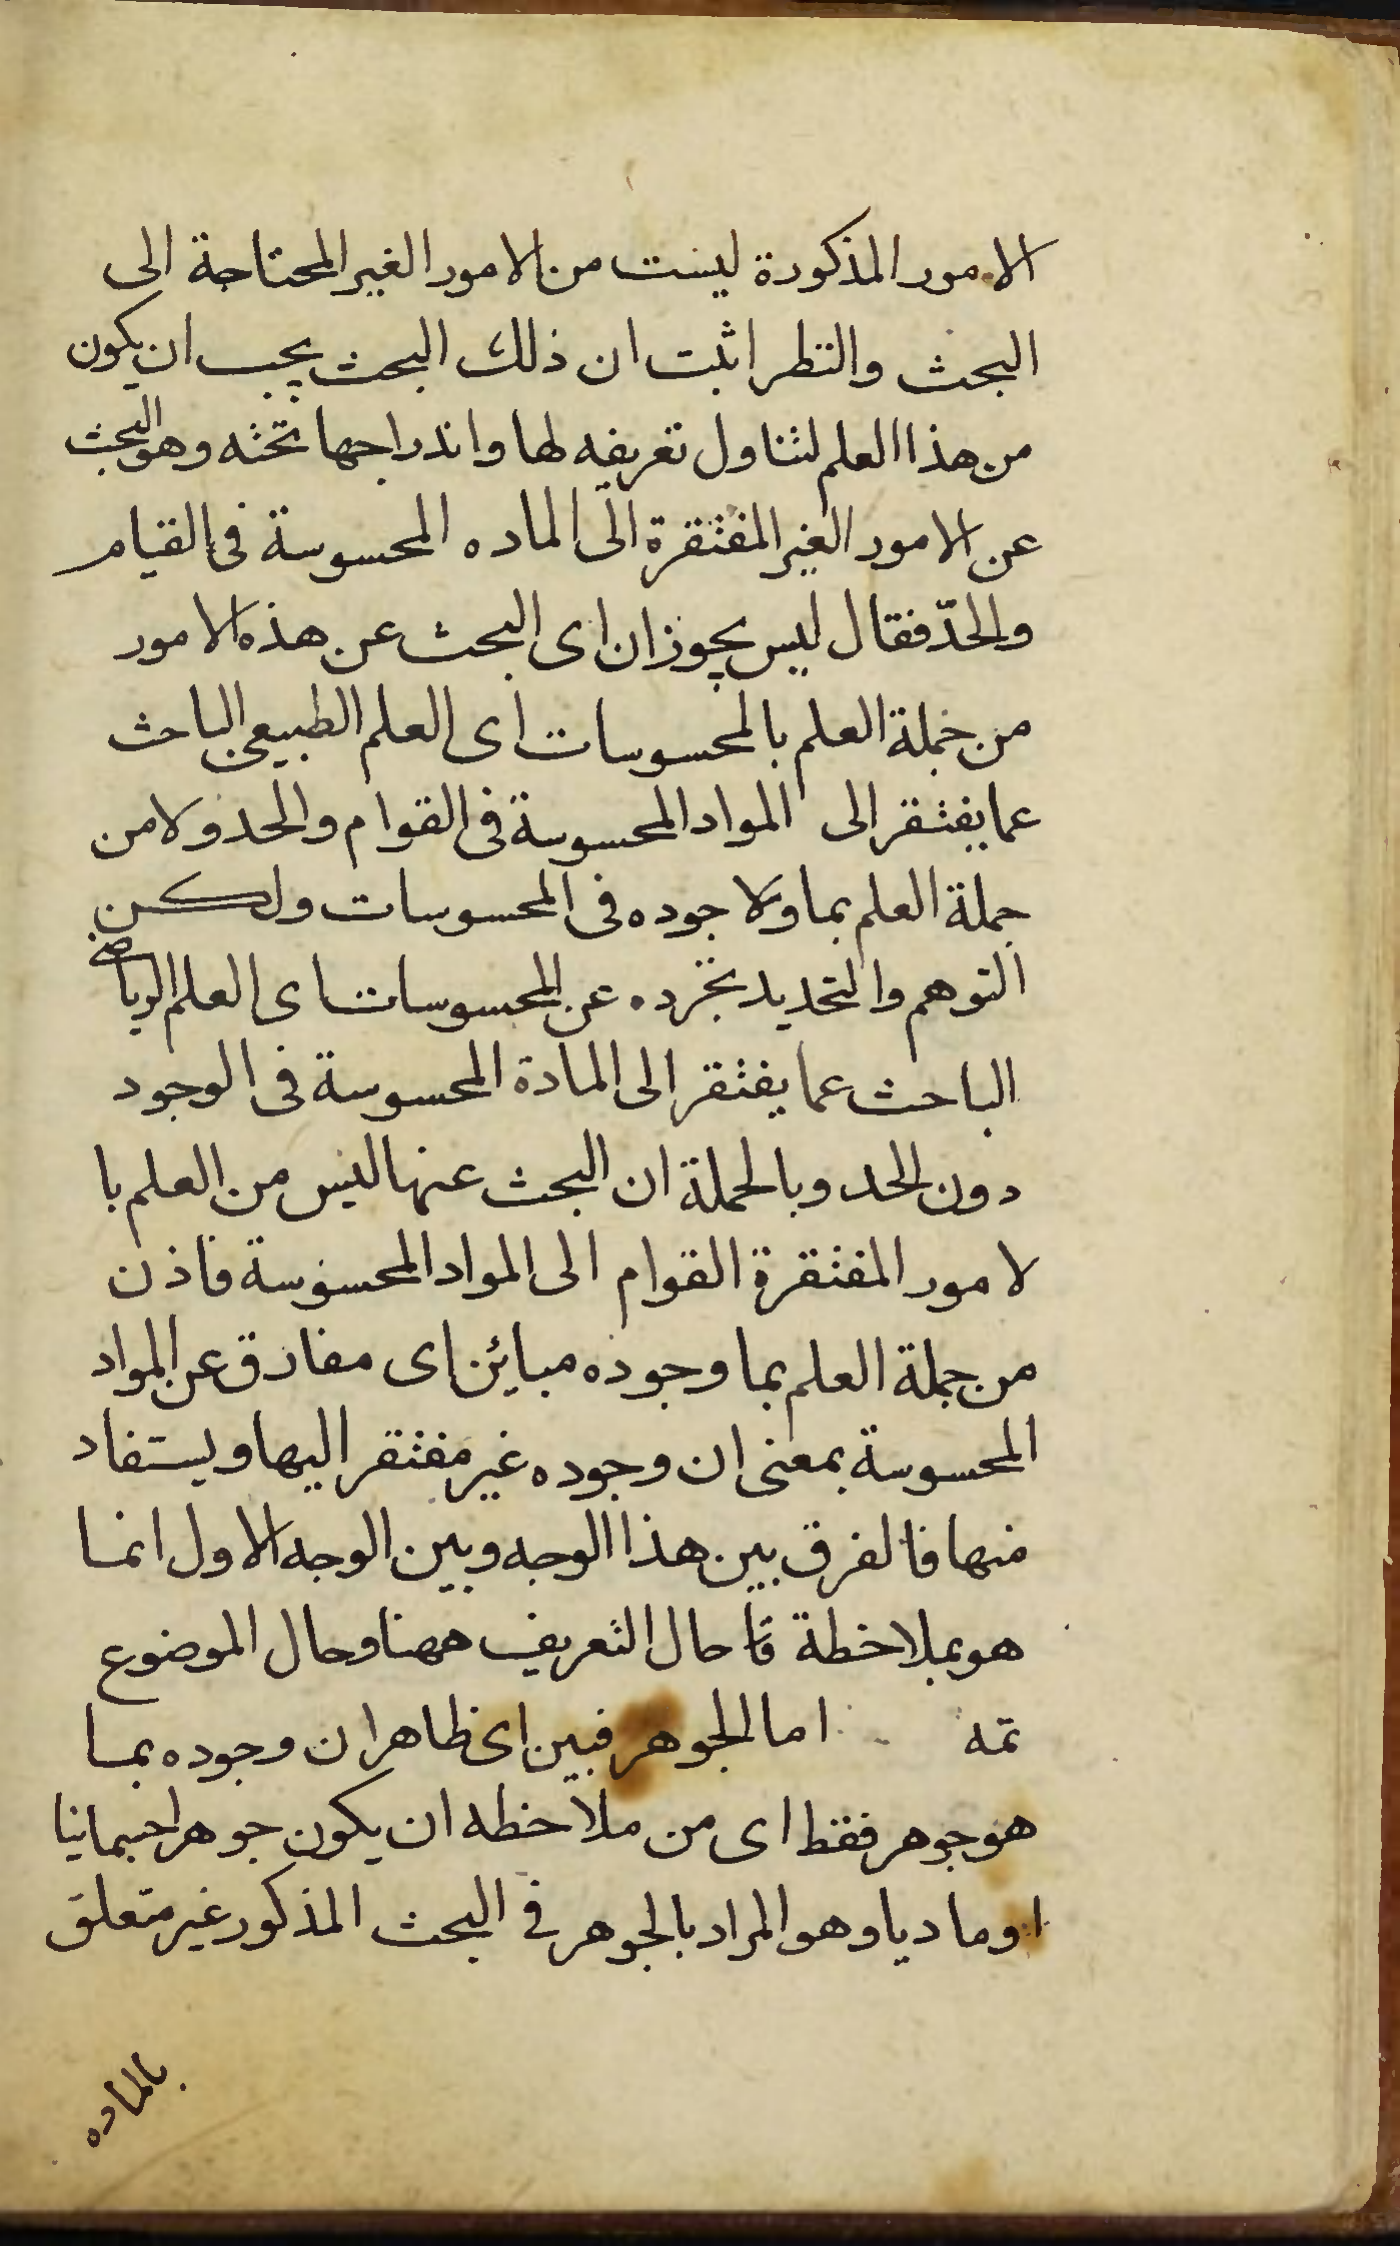 الامور المذكورة ليست من الامور الغير المحتاجة الى
البحث والنظر اثبت ان ذلك البحث يجب ان يكون
من هذا العلم لتناول تعريفه لها واندراجها تحته وهو البحث
عن الامور الغير المفتقرة الى الماده المحسوسة فى القيام
والحدّ فقال ليس يجوز ان اى البحث عن هذه الامور
من جملة العلم بالمحسوسات اى العلم الطبيعى الباحث
عما يفتقر الى المواد المحسوسة فى القوام والحد ولا من
جملة العلم بما ولا جوده فى المحسوسات ولكن
التوهم والتحديد تجرده عن المحسوسات اى العلم الرياضى
الباحث عما يفتقر الى المادة المحسوسة فى الوجود
دون الحد وبالجملة ان البحث عنها ليس من العلم با
لامور المفتقرة القوام الى المواد المحسوسة فاذن
من جملة العلم بما وجوده مبائن اى مفارق عن المواد
المحسوسة بمعنى ان وجوده غير مفتقر اليها ويستفاد
منها فالفرق بين هذا الوجه وبين الوجه الاول انما
هو بملاحظة قا حال التعريف ههنا وحال الموضوع
ثمه اما الجوهر فبين اى ظاهر ان وجوده بما
هو جوهر فقط اى من ملاحظه ان يكون جوهرا جسمانيا
او ماديا وهو المراد بالجوهر فى البحث المذكور غير متعلق
بالماده